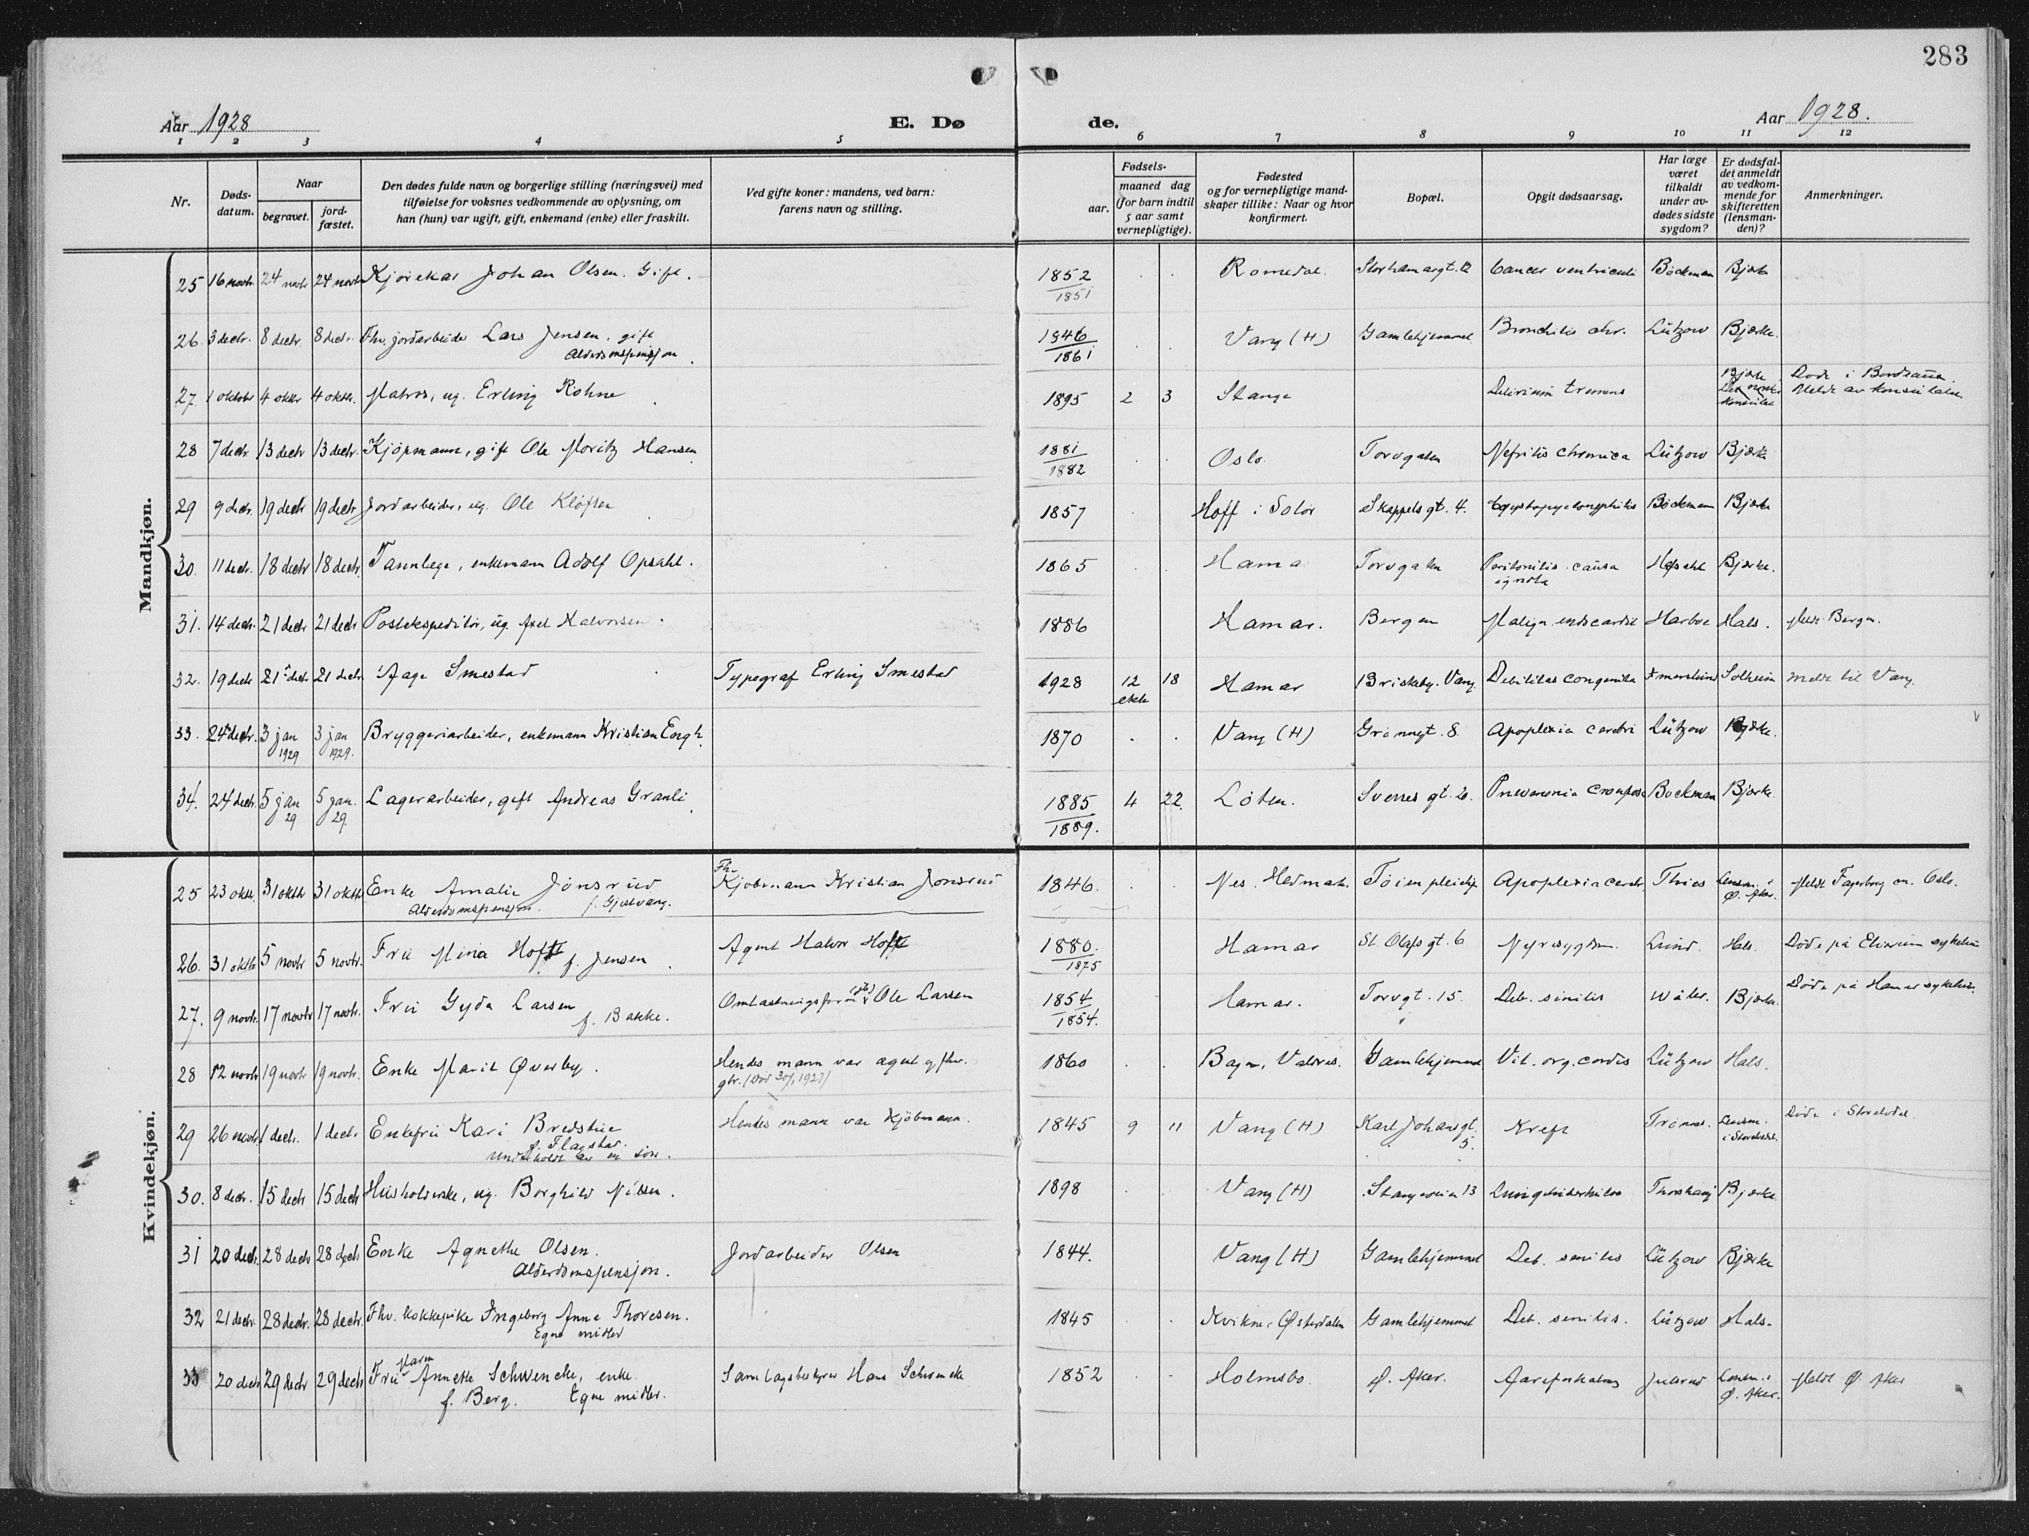 283
Aar 1928 E. Døde. Aar 1928.
1 2 3 4 5 6 7 8 9 10 11 12
Nr.
Døds-
datum.
Naar
begravet.
jord-
fæstet.
Den dødes fulde navn og borgerlige stilling (næringsvei) med
tilføielse for voksnes vedkommende av oplysning, om
han (hun) var ugift, gift, enkemand (enke) eller fraskilt.
Ved gifte koner: mandens, ved barn:
farens navn og stilling.
Fødsels-
aar.
maaned dag
(for barn indtil
5 aar samt
vernepligtige).
Fødested
og for vernepligtige mand-
skaper tillike: Naar og hvor
konfirmert.
Bopæl.
Opgit dødsaarsag.
Har læge
været
tilkaldt
under av-
dødes sidste
sygdom?
Er dødsfal-
det anmeldt
av vedkom-
mende for
skifteretten
(lensman-
den)?
Anmerkninger.
Mandkjøn.
25 16 novbr. 24 novbr 24 novbr Kjørekar Johan Olsen. Gift. 1852 Romedal. Storhamargt. 12 Cancer ventriculi Böckman Bjørke
1851
26. 3 decbr. 8 decbr 8 decbr. Fhv. jordarbeider Lars Jensen. gift 1846 Vang (H) Gamlehjemmet Bronchitis chr. Lützow Bjørke.
Alderdomspensjon 1861
27. 1 oktobr 4 oktbr 4 oktbr. Matros, ug. Erling Rohne 1895 2 3 Stange Delirium tremens Bjørke Døde i Bordeaux.
Det norske konsulat Meldt av konsulatet
28 7 decbr 13 decbr 13 decbr. Kjøpmann, gift Ole Moritz Hansen 1881 Oslo. Torvgaten Nefritis chronica Lützow Bjørke
1882
29 9 decbr. 19 decbr 19 decbr Jordarbeider, ug. Ole Kløften 1857 Hoff i Solør Skappelsgt. 4. Böckmann Bjørke
30. 11 decbr. 18 decbr 18 decbr. Tannlege, enkemann Adolf Opsahl. 1865 Hamar Torvgaten Peritonitis causa Hofsahl Bjørke.
ignota
31. 14 decbr. 21 decbr 21 decbr Postekspeditør, ug. Axel Halvorsen. 1886 Hamar. Bergen Malign endocardit Harboe Hals. Meldt Bergen.
32. 19 decbr 21 decbr 21 decbr Aage Smestad Typograf Erling Smestad 1928 12 18 Hamar Briskeby. Vang Debilitas congenita Solheim Meldt til Vang.
oktbr
33. 24 decbr. 3 jan 3 jan Bryggeriarbeider, enkemann Kristian Engh. 1870 Vang (H) Grønnegt. 8. Apoplexia cerebri Lützow Bjørke.
1929 1929.
34. 24 decbr. 5 jan 5 jan. Lagerarbeider, gift Andreas Granli 1885 4 22. Løten. Sverres gt. 20. Pneumonia crouposa Bockman Bjørke.
29 29. 1889.
Kvindekjøn.
25 23 oktbr. 31 oktbr 31 oktbr Enke Amalie Jønsrud Fhv. Kjøbmann Kristian Jønsrud 1846. Nes. Hedmark. Tøien pleiehj. Apoplexia cerebr. Thies Lensm. i Meldt Fagerborg m. Oslo.
Alderdomspensjon. f. Gjestvang. Ø. Aker.
26. 31 oktbr 5 novbr 5 novbr. Fru Mina Hoff f. Jensen Agent Halvor Hoff 1880. Hamar St. Olafs gt. 6 Nyresygdom. Lund. Hals. Døde på Elverum sykehus
1875
27. 9 novbr. 17 novbr 17 novbr. Fru Gyda Larsen Ole Larsen 1854 Hamar. Torvgt. 15. Deb. senilis Wåler. Bjørke. Døde på Hamar sykehus.
f. Bakke. 1854.
28 12 novbr 19 novbr 19 novbr. Enke Marit Øverby. Hendes mann var agent 1860 Bagn, Valdres. Gamlehjemmet Vit. org. cordis Lützow Hals.
29 26 novbr 1 decbr. 1 decbr Enkefru Kari Bredstue Hendes mann var kjøbmann. 1845 9 11 Vang (H) Karl Johansgt. 5. Kreft Trønnes. Lensm. Døde i Storelvdal
f. Flagstad. i Storelvdal.
Underholdt av en sønn.
30. 8 decbr. 15 decbr 15 decbr Husholderske, ug. Borghild Nilsen. 1898 Vang (H) Stangeveien 13 Lungetuberkulose Thorshaug Bjørke
31 20 decbr. 28 decbr 28 decbr Enke Agnethe Olsen. Jordarbeider Olsen 1844. Vang (H) Gamlehjemmet Deb. senilis Lützow Bjørke
Alderdomspensjon.
32 21 decbr 28 decbr. 28 decbr. Fhv. kokkepike Ingeborg Anne Thoresen. 1845 Kvikne i Østerdalen Gamlehjemmet Deb. senilis. Lützow Hals.
Egne midler
33 20 decbr 29 decbr 29 decbr Fru Maren Annette Schwencke, enke. Samlagsbestyrer Hans Schwencke 1852 Holmsbo. Ø. Aker. Aareforkalkning Lensm. i Meldt Ø. Aker
f. Berg. Egne midler. Ø. Aker.